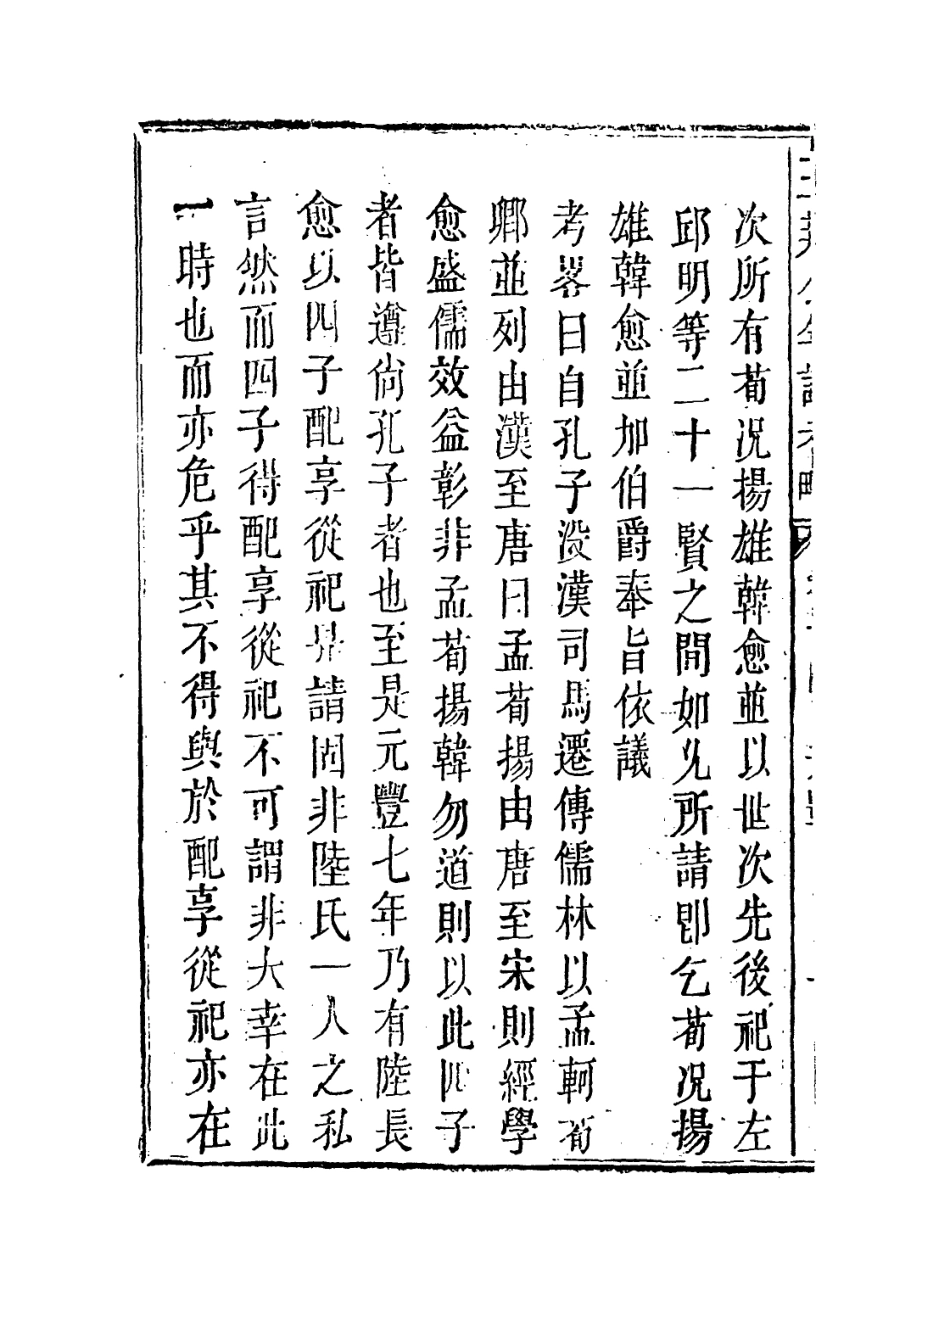 次所有荀況揚雄韓愈並以世次先後祀于左
邱明等二十一賢之間如允所請卽乞荀況揚
雄韓愈並加伯爵奉旨依議
考畧曰自孔子沒漢司馬遷傳儒林以孟軻荀
卿並列由漢至唐曰孟荀揚由唐至宋則經學
愈盛儒效益彰非孟荀揚韓勿道則以此四子
者皆遵尙孔子者也至是元豐七年乃有陸長
愈以四子配享從祀是請固非陸氏一人之私
言然而四子得配享從祀不可謂非大幸在此
一時也而亦危乎其不得與於配享從祀亦在